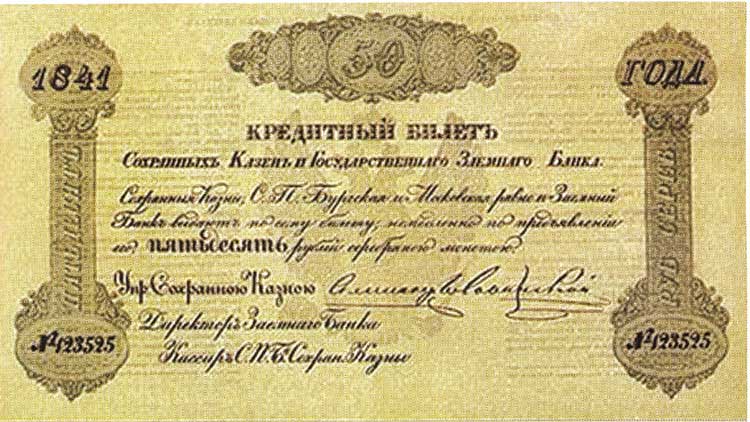 1841
50
ГОДА.
КРЕДИТНЫЙ БИЛЕТЪ
Сохранныхъ Казенъ и Государственнаго Заемнаго Банка.
Сохранныя Казны, С. П. Бургская и Московская равно и Заемный
Банкъ выдаютъ по сему билету, немедленно по предъявленіи
его, пятьдесятъ рублей серебряною монетою.
Упр. Сохранною Казною
Директоръ Заемнаго Банка
Кассиръ С. П. Б. Сохран. Казны
ПЯТЬДЕСЯТЪ
РУБ. СЕРЕБ.
№ 123525
№ 123525